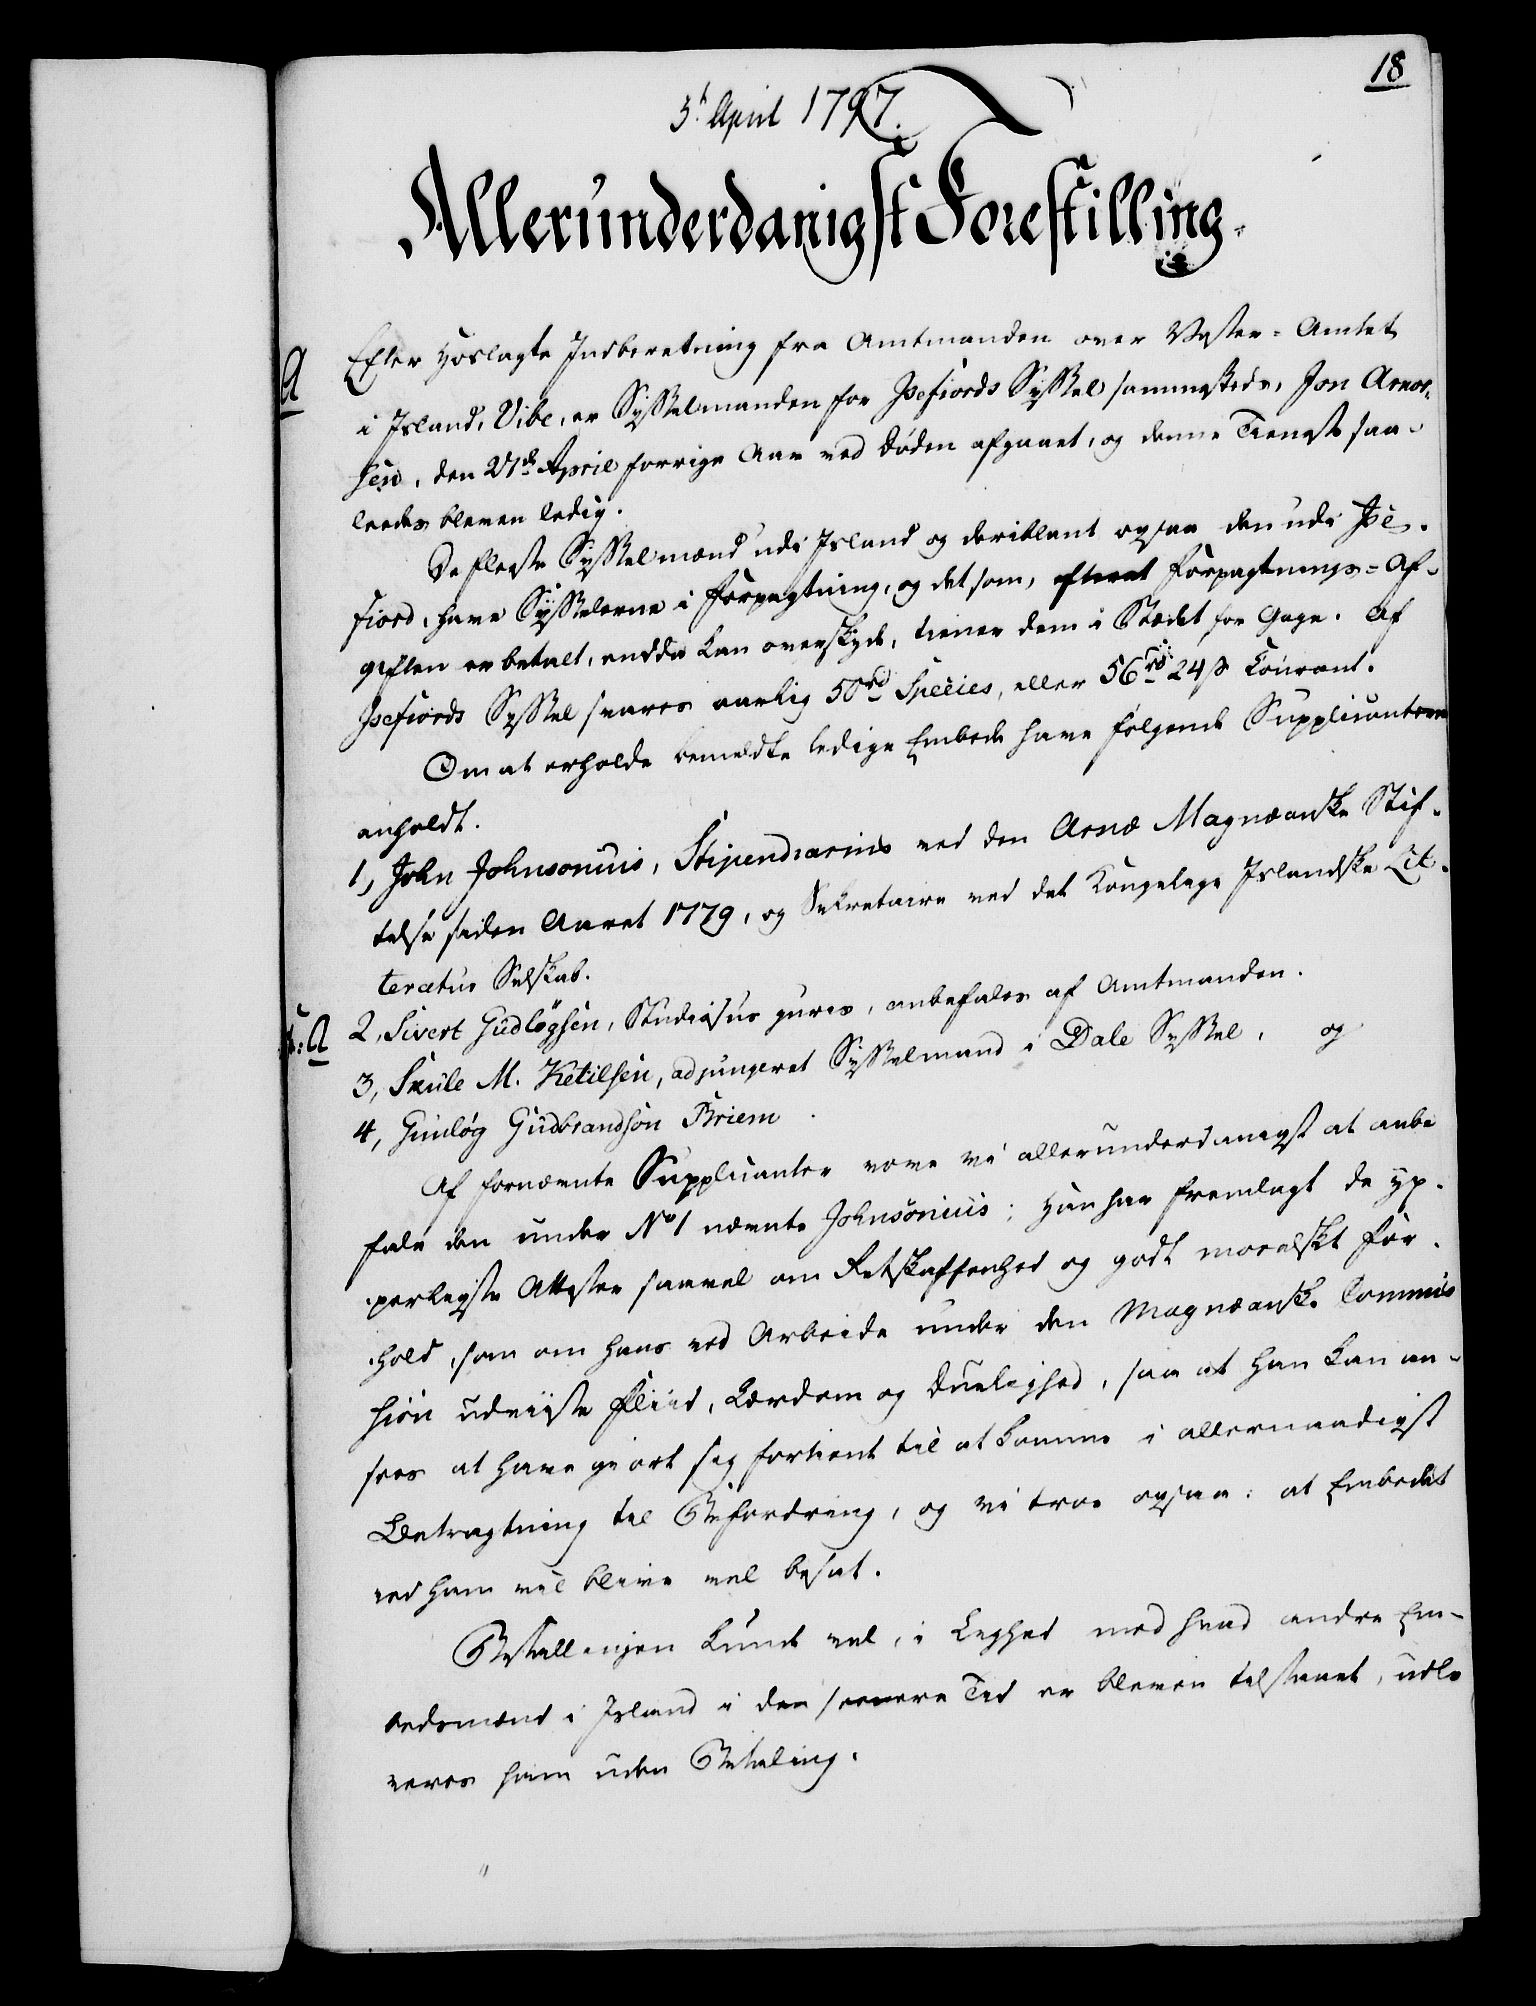 18
5t April 1797.
Allerunderdanigst Forestilling.
A
Efter hoslagte Indberetning fra Amtmanden over Vester-Amtet
i Island, Vibe, er Sysselmanden for Isefiords Syssel sammesteds, Jon Arnor-
sen, den 21de April forrige Aar ved Døden afgaaet, og denne Tieneste saa-
leedes bleven ledig.
De fleste Sysselmænd udi Island og deriblant ogsaa den udi Ise-
fiord, have Sysselerne i Forpagtning, og det som, efterat Forpagtnings-Af-
giften er betalt, endda kan overskyde, tiener dem i Stædet for Gage. Af
Isefiords Syssel svares aarlig 50 rd Species, eller 56 rd 24 s Courant.
Om at erholde bemeldte ledige Embede have følgende Supplicantere
anholdt.
1, John Johnsonius, Stipendiarius ved den Arnæ Magnæanske Stif-
telse siden Aaret 1779, og Sekretaire ved det Kongelige Islandske Lit-
teratur Selskab.
A
2, Sivert Gudløgsen, Studiosus juris, anbefales af Amtmanden.
3, Skule M. Ketilsen, adjungeret Sysselmand i Dale Syssel, og
4, Gunløg Gudbrandsøn Briem.
Af fornævnte Supplicanter vove vi allerunderdanigst at anbe
fale den under No 1 nævnte Johnsonius; Han har fremlagt de yp-
perligste Attester saavel om Retskaffenhed og godt moralskt For-
hold, som om hans ved Arbeide under den Magnæanske Commis
sion udviiste Fliid, Lærdom og Duelighed, saa at han kan an-
sees at have giort sig fortient til at komme i allernaadigst
Betragtning til Befordring, og vi troe ogsaa: at Embedet
ved ham vil blive vel besat.
Bestallingen kunde vel, i Lighed med hvad andre Em-
bedsmænd i Island i den seenere Tid er bleven tilstaaet, udle
veres ham uden Betaling.